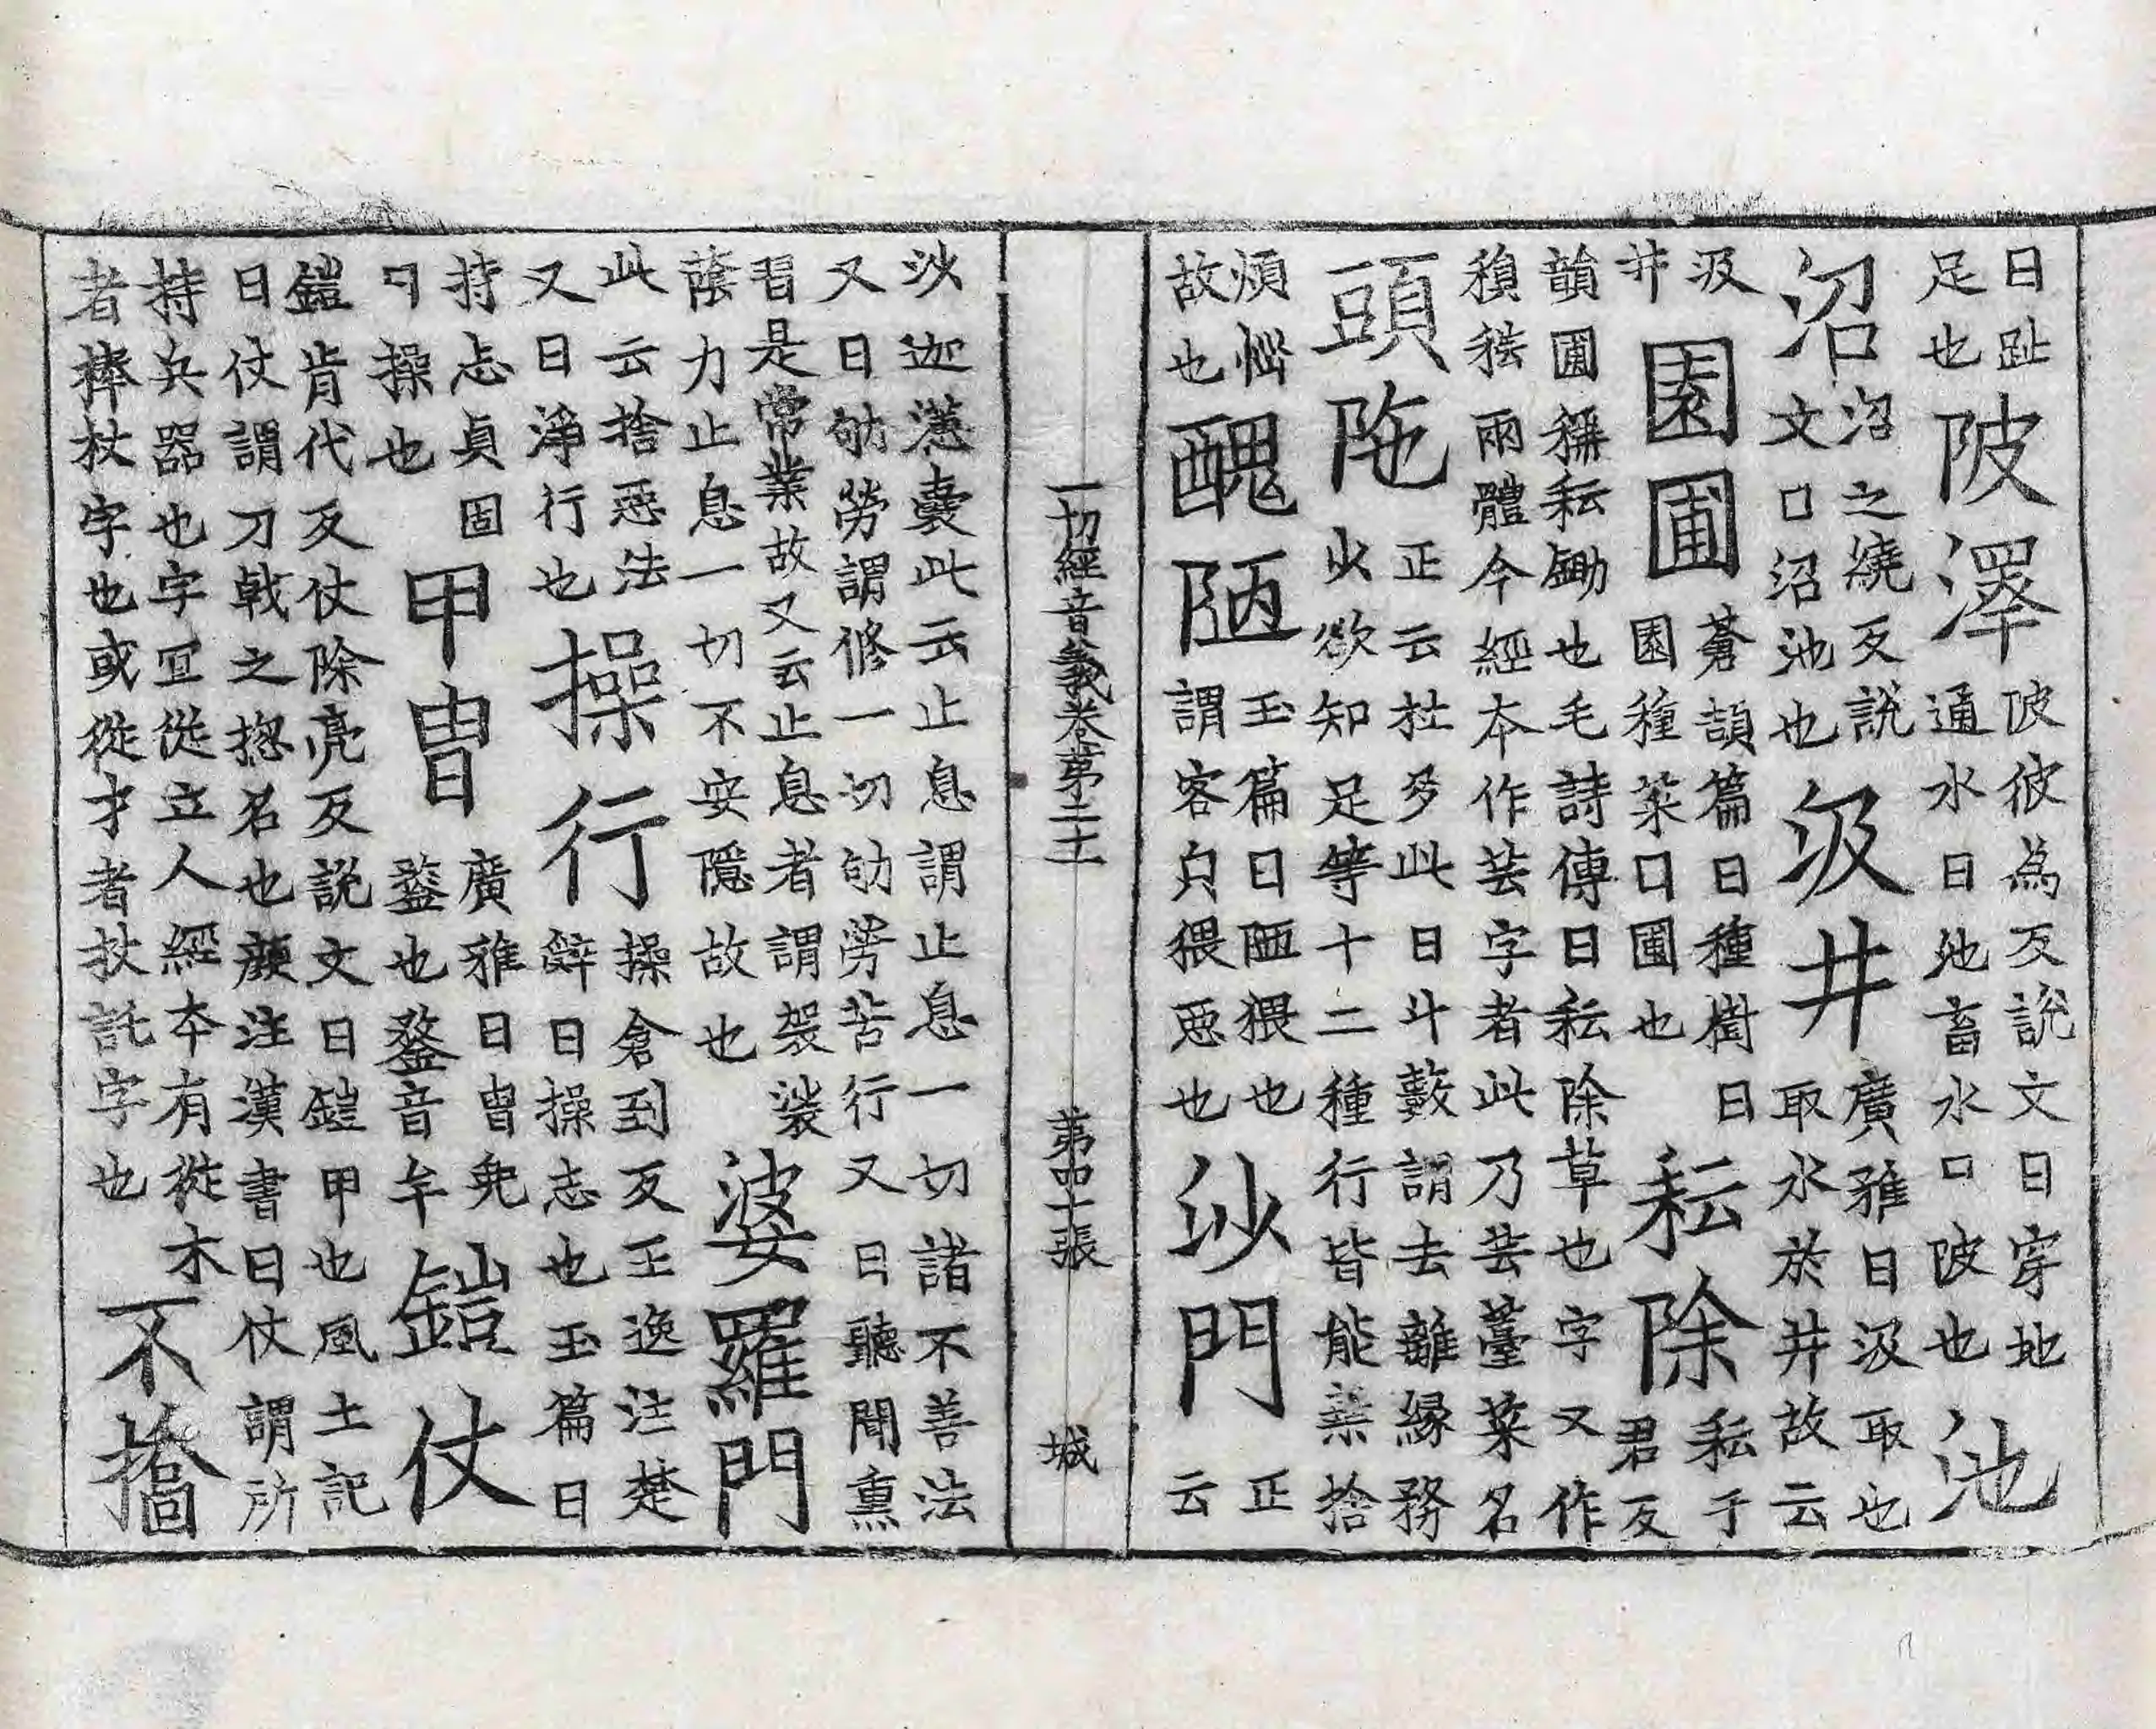 曰趾
足也
陂澤
陂彼為反說文曰穿地
通水曰池畜水曰陂也
池
沼
沼之繞反說
文曰沼池也
汲井
廣雅曰汲取也
取水於井故云
汲
井
園圃
蒼頡篇曰種樹曰
園種菜曰圃也
耘除
耘于
君反
韻圃稱耘鋤也毛詩傳曰耘除草也字又作
兩體今經本作芸字者此乃芸薹菜名
頭陁
正云杜多此曰斗藪謂去離緣務
少欲知足等十二種行皆能棄捨
煩惱
故也
醜陋
玉篇曰陋猥也
謂容皃猥惡也
沙門
正
云
一切經音義卷第二十一
第四十張
城
沙迦懣囊此云止息謂止息一切諸不善法
又曰劬勞謂修一切劬勞苦行又曰聽聞熏
習是常業故又云止息者謂袈裟
蔭力止息一切不安隱故也
婆羅門
此云捨惡法
又曰淨行也
操行
操倉到反王逸注楚
辭曰操志也玉篇曰
持志貞固
曰操也
甲冑
廣雅曰冑兜
鍪也鍪音牟
鎧仗
鎧肯代反仗除亮反說文曰鎧甲也風土記
曰仗謂刀戟之揔名也顏注漢書曰仗謂所
持兵器也字冝從立人經本有從木
者棒杖字也或從才者扙託字也
不撟